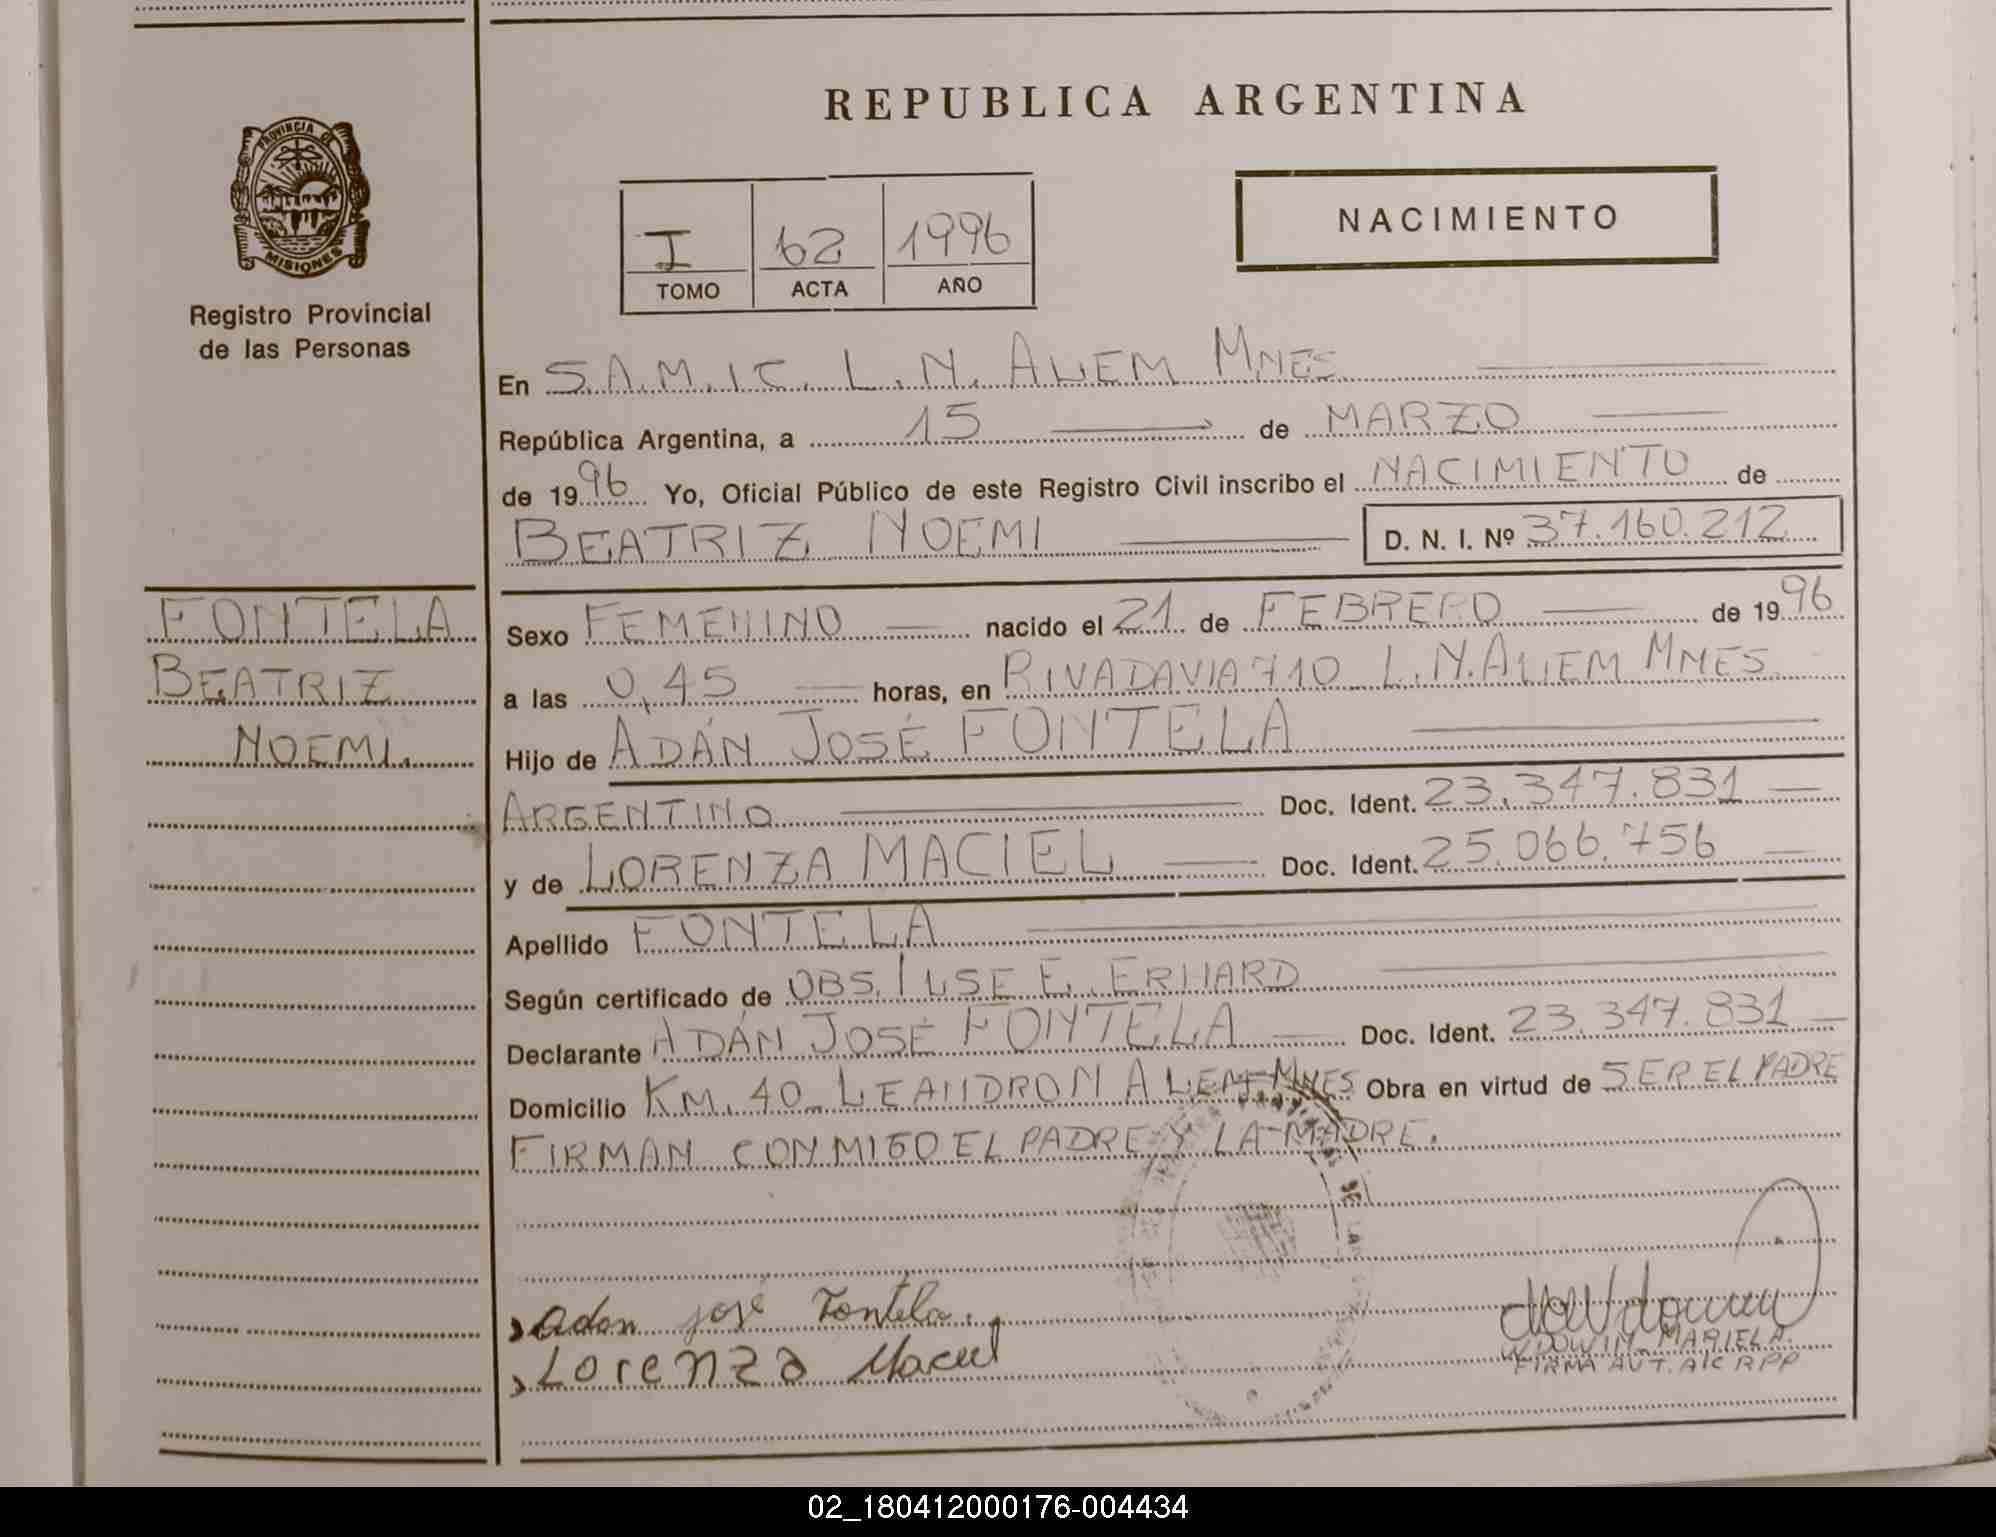 REPUBLICA ARGENTINA
PROVINCIA DE
MISIONES
Registro Provincial
de las Personas
I 62 1996
TOMO ACTA AÑO
NACIMIENTO
En S.A.M.I.C. L.N. ALEM MNES.
República Argentina, a 15 de MARZO
de 1996 Yo, Oficial Público de este Registro Civil inscribo el NACIMIENTO de
BEATRIZ NOEMI D. N. I. Nº 37.160.212
FONTELA
BEATRIZ
NOEMI.
Sexo FEMENINO nacido el 21 de FEBRERO de 1996
a las 0,45 horas, en RIVADAVIA 710 L.N. ALEM MNES
Hijo de ADÁN JOSÉ FONTELA
ARGENTINO Doc. Ident. 23.347.831
y de LORENZA MACIEL Doc. Ident. 25.066.756
Apellido FONTELA
Según certificado de OBS. ILSE E. ERHARD
Declarante ADÁN JOSÉ FONTELA Doc. Ident. 23.347.831
Domicilio KM. 40 LEANDRO N ALEM MNES Obra en virtud de SER EL PADRE
FIRMAN CONMIGO EL PADRE Y LA MADRE.
Adan josé Fontela.
Lorenza Maciel
WDOWIN MARIELA.
FIRMA AUT. A/C RPP
02_180412000176-004434